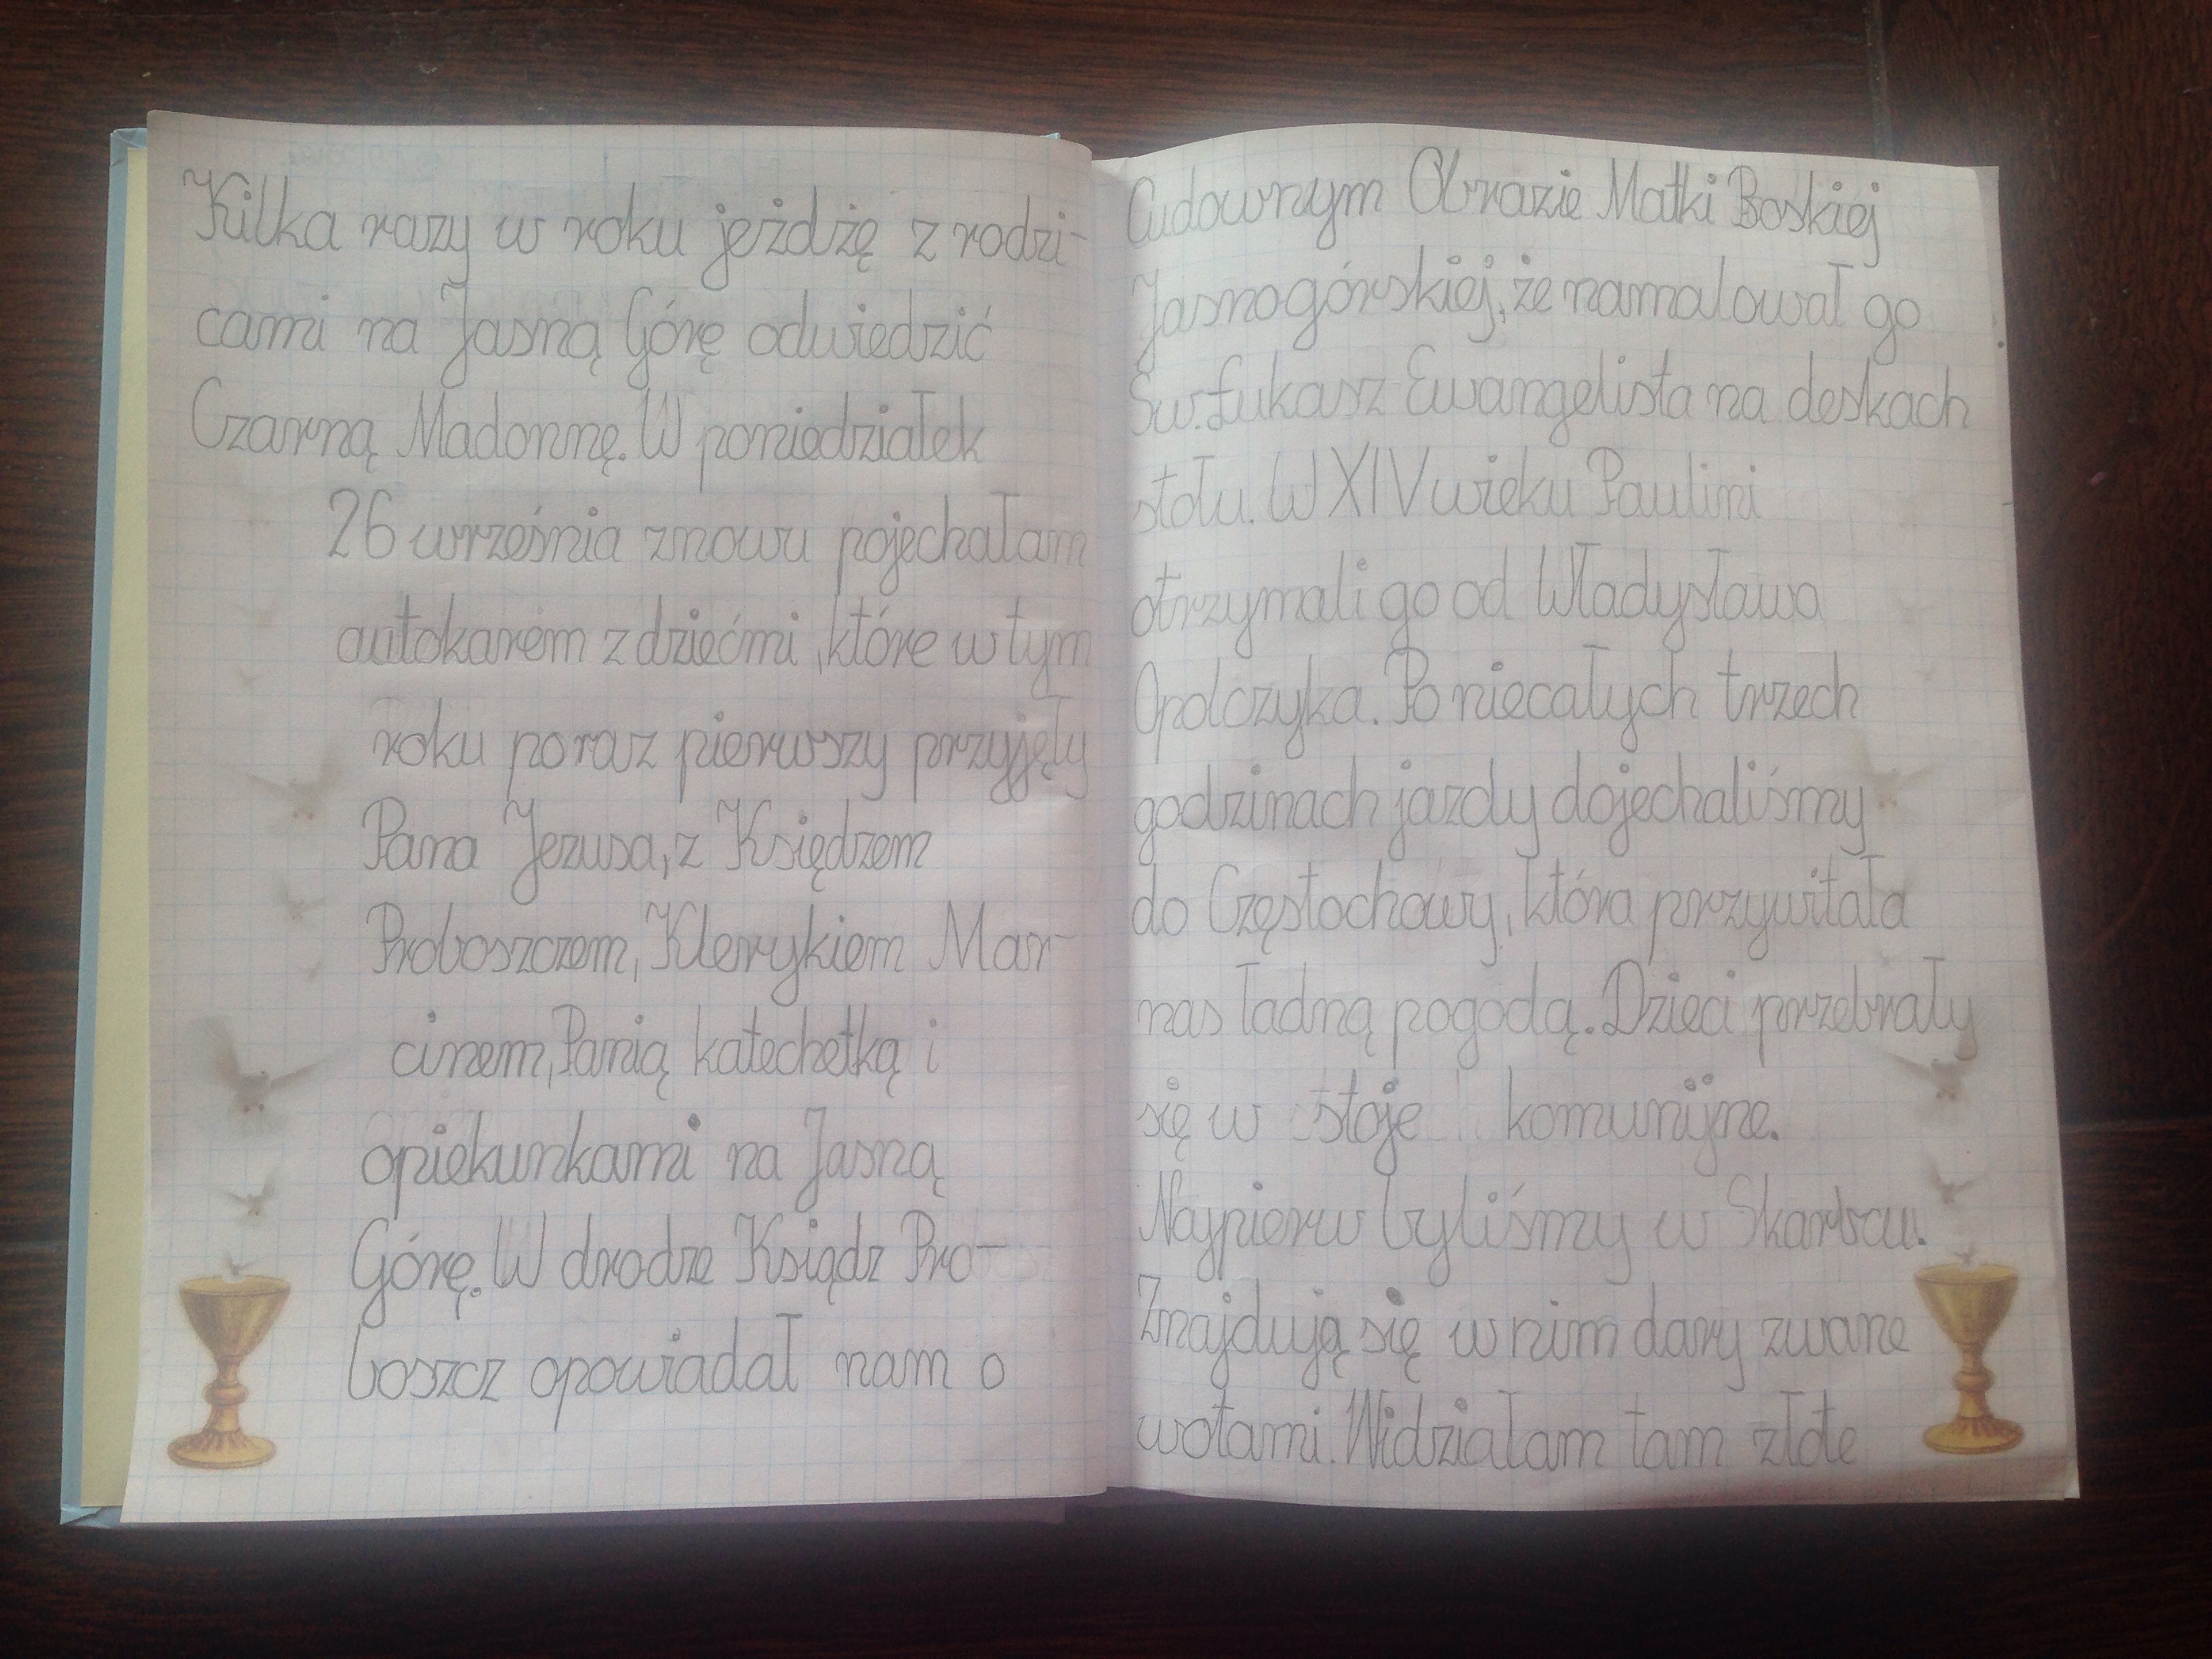 Kilka razy w roku jeżdżę z rodzi-
cami na Jasną Górę odwiedzić
Czarną Madonnę. W poniedziałek
26 września znowu pojechałam
autokarem z dziećmi, które w tym
roku po raz pierwszy przyjęły
Pana Jezusa, z Księdzem
Proboszczem, Klerykiem Mar-
cinem, Panią katechetką i
opiekunkami na Jasną
Górę. W drodze Ksiądz Pro-
boszcz opowiadał nam o
Cudownym Obrazie Matki Boskiej
Jasnogórskiej, że namalował go
Św. Łukasz Ewangelista na deskach
stołu. W XIV wieku Paulini
otrzymali go od Władysława
Opolczyka. Po niecałych trzech
godzinach jazdy dojechaliśmy
do Częstochowy, która przywitała
nas ładną pogodą. Dzieci przebrały
się w stoje komunijne.
Najpierw byliśmy w Skarbcu.
Znajdują się w nim dary zwane
wotami. Widziałam tam złote